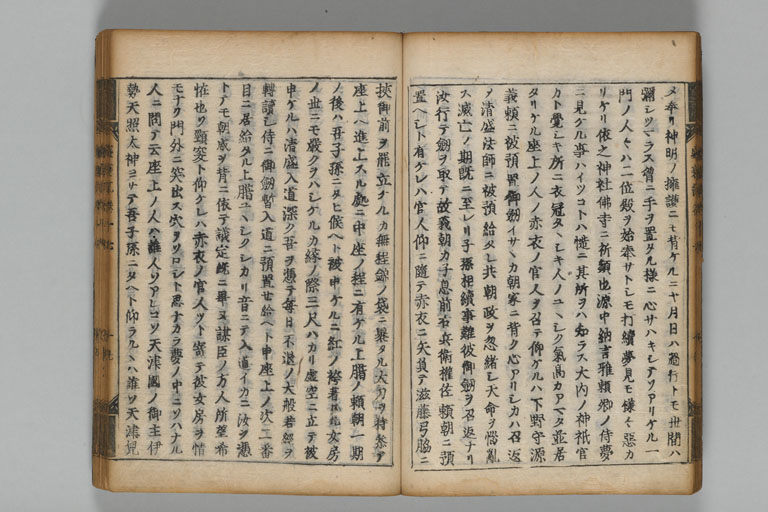 メ奉リ神明ノ擁護ニモ背ケルニヤ月日ハ過行トモ世間ハ
靜シツマラス僧ニ手ヲ置タル様ニ心サハキシテソアリケル一
門ノ人々ハ二位殿ヲ始奉サトシモ打續夢見モ様々惡カ
リケリ依之神社佛寺ニ祈願也源中納言雅頼卿ノ侍夢
ニ見ケル事ハイツコトハ憶ニ其所ヲハ知ラス大内ノ神祇官
カト覺シキ所ニ衣冠タヽシキ人ノユヽシク氣高カアマタ並居
タリケル座上ノ人ノ赤衣ノ官人ヲ召テ仰ケルハ下野守源
義頼ニ被預置御劔イサヽカ朝家ニ背ク心アリシカハ召返
ノ清盛法師ニ被預給タレ共朝政ヲ忽緒シ天命ヲ惱亂
ス滅亡ノ期既ニ至レリ子孫相續事難彼御劔ヲ召返ナリ
汝行テ劔ヲ取テ故義朝カ子息前右兵衛權佐頼朝ニ預
置ヘシト有ケレハ官人仰ニ隨テ赤衣ニ矢負テ滋藤弓脇ニ
挾御前ヲ罷立ケルカ無程錦ノ袋ニ裹タル太刀ヲ持參テ
座上ヘ進上スル處ニ中座ノ程ニ有ケル上臈ノ頼朝一期
ノ後ハ吾子孫ニタヒ候ヘト被申ケルニ紅ノ袴著タル女房
ノ世ニモ嚴クヲハシケルカ縁ノ際三尺ハカリ虚空ニ立テ被
申ケルハ清盛入道深ク吾ヲ憑テ毎日不退ノ大般若經ヲ
轉讀シ侍ニ御劔暫入道ニ預置セ給ヘト申座上ノ次二番
目ニ居給タル上臈ユヽシクシカリ音ニテ入道イカニ汝ヲ憑
トテモ朝威ヲ背ニ依テ議定既ニ畢ヌ謀臣ノ方人所望希
恠也ヲ頸突ト仰ケレハ赤衣ノ官人ツト寄テ彼女房ヲ情
モナク門外ニ突出ス穴ヲソロシト思ナカラ夢ノ中ニソハナル
人ニ問テ云座上ノ人ハ誰人ソアレコソ天津國ノ御主伊
勢天照太神ヨサテ吾子孫ニタヘト仰ラルヽハ誰ソ天津兒